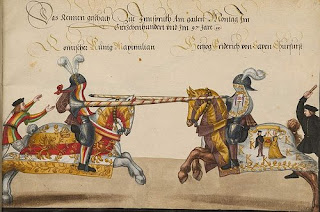 Das Rennen geschach Zue Innsprukh Am guten Montag Im
hundert und Im 97 Jar
Römischer Künig Maximilian
Herzog Friderich von Saxen Churfürst